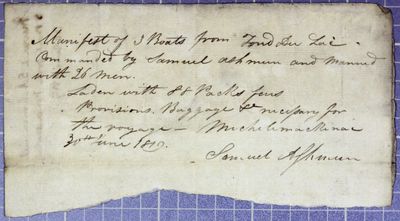 Manifest of 3 Boats from Fond Du Lac -
Commanded by Samuel Ashmun and Manned
with 26 Men.
Laden with 88 Packs furs
Provisions, Baggage &c necessary for
the voyage — Michilimackinac
30th June 18
Samuel Ashmun